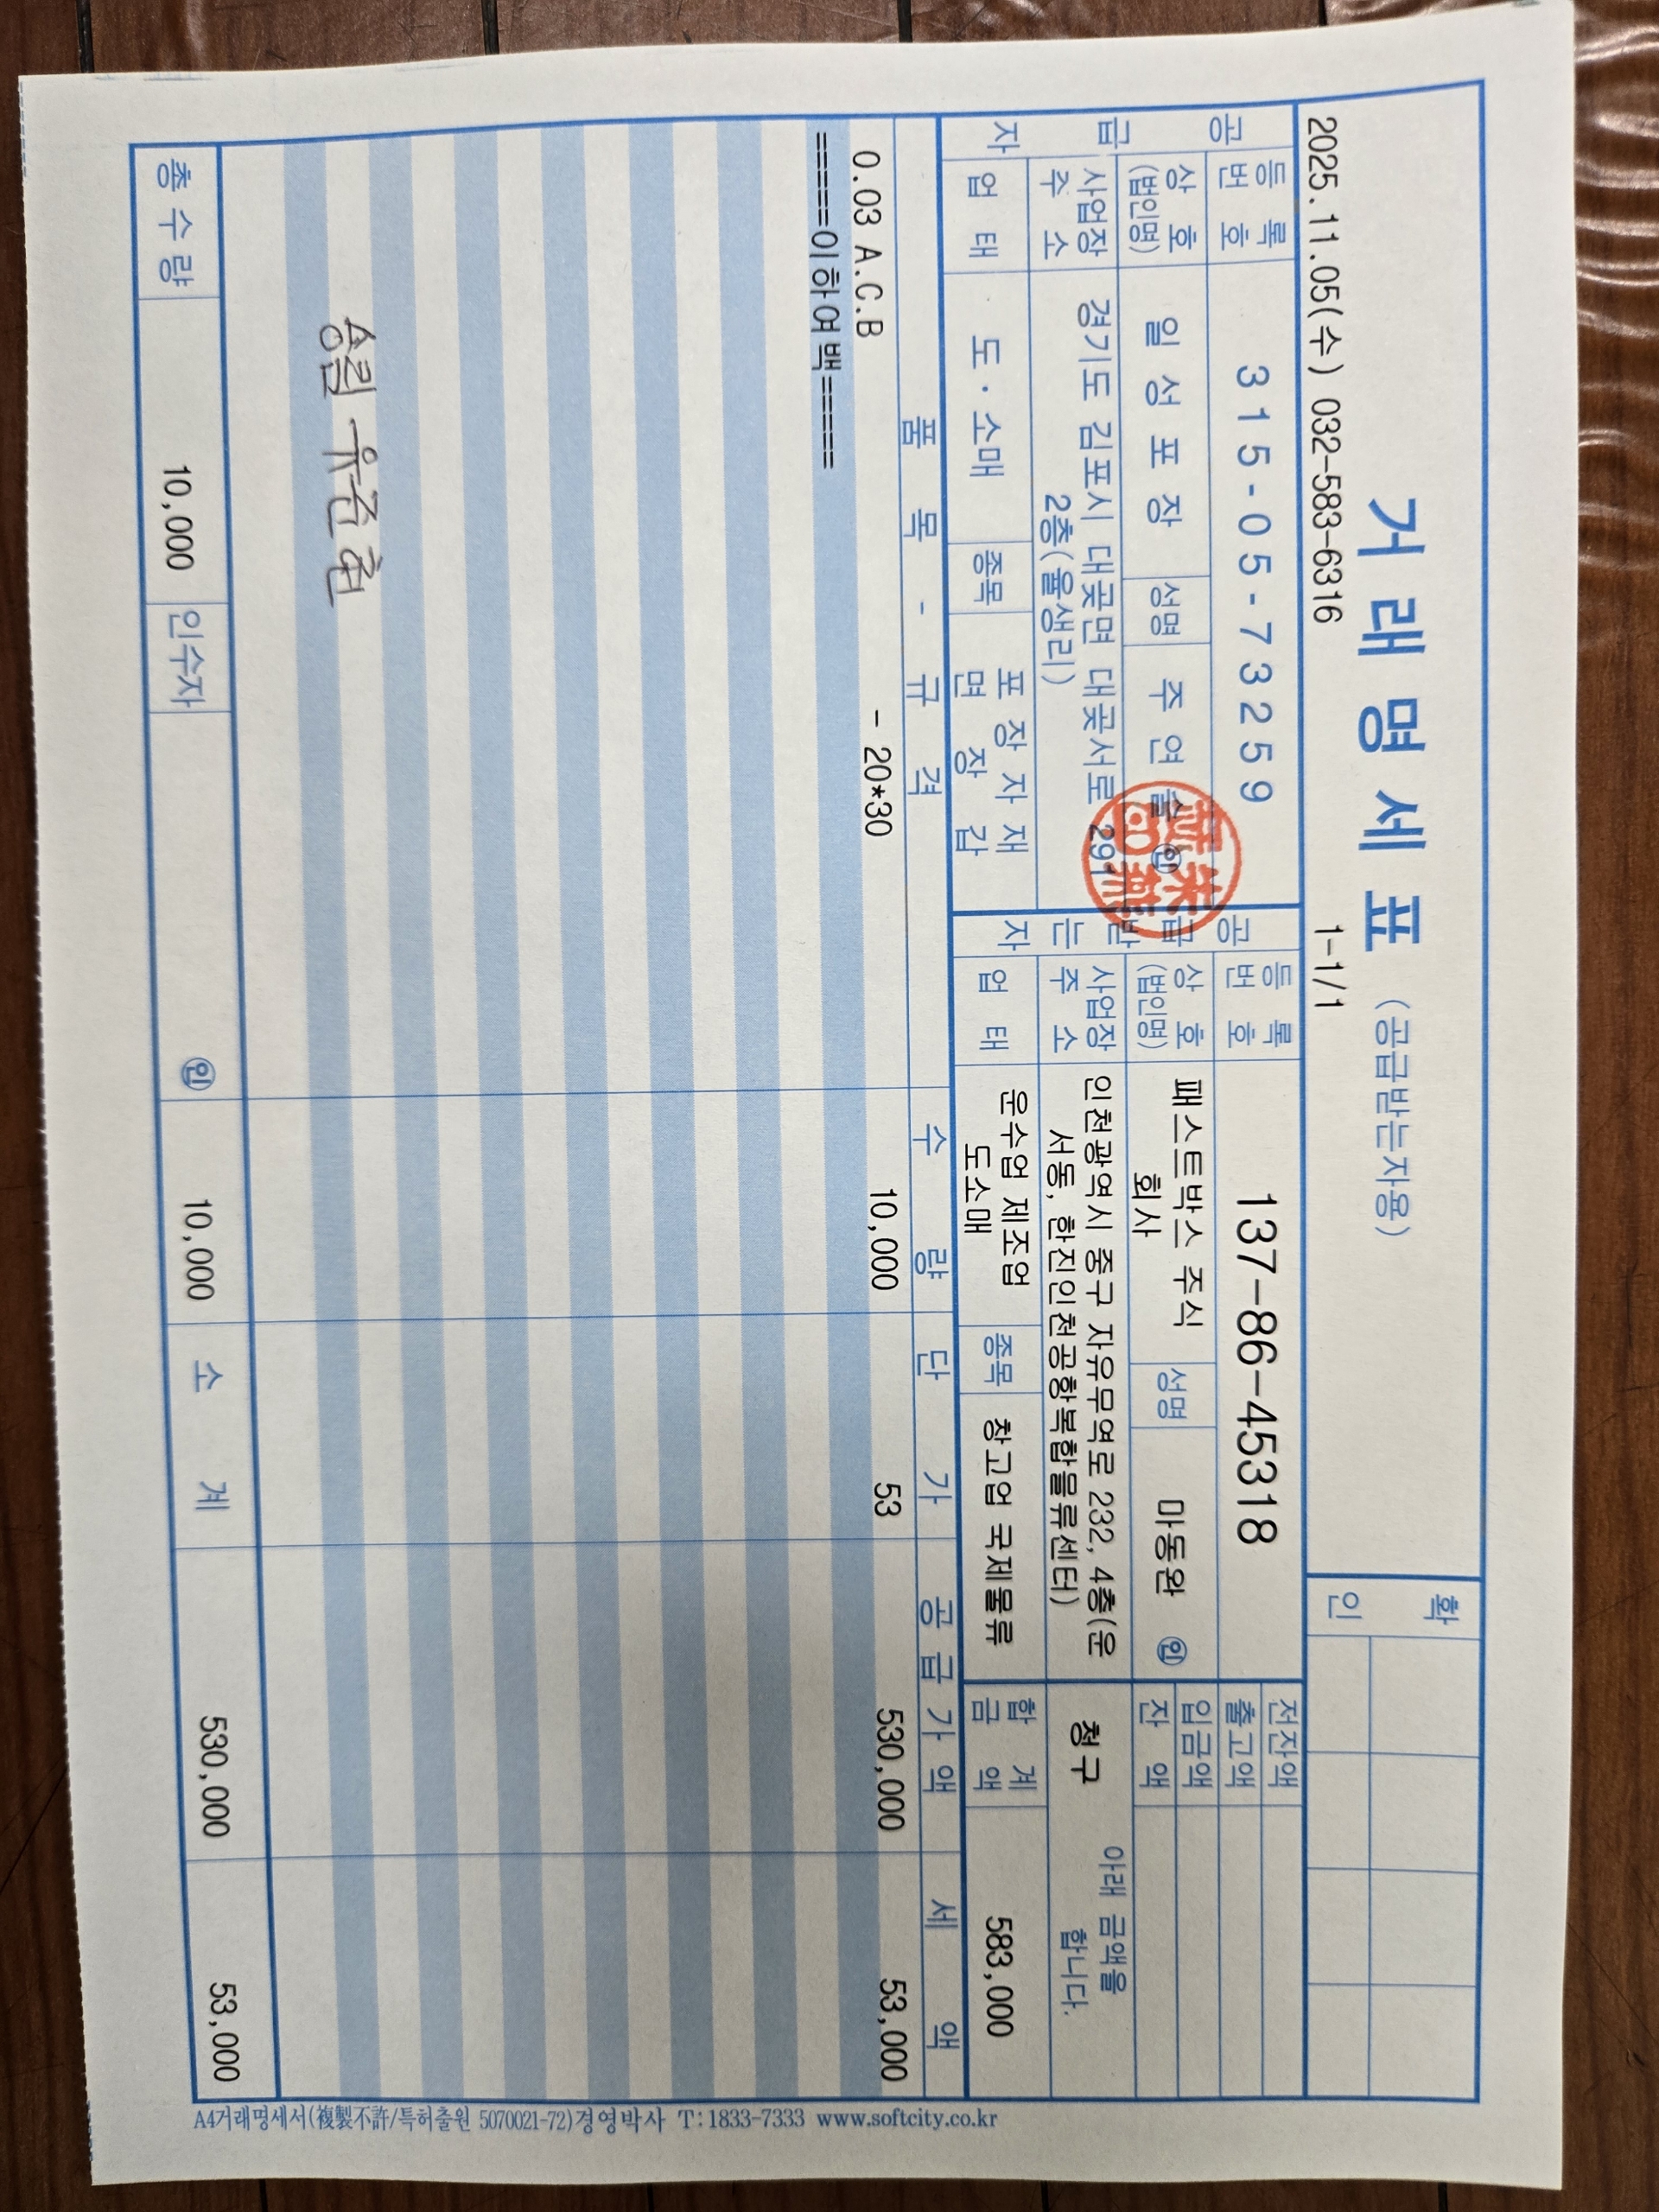 거래명세표 (공급받는자용)
확인
2025.11.05(수) 032-583-6316 1-1/1
공급자
등록번호 315-05-73259
상호(법인명) 일성포장 성명 주연솔 ㊞
사업장주소 경기도 김포시 대곶면 대곶서로 291
2층(율생리)
업태 도·소매 종목 포장자재
면장갑
공급받는자
등록번호 137-86-45318
상호(법인명) 패스트박스 주식
회사 성명 마동완 ㊞
사업장주소 인천광역시 중구 자유무역로 232, 4층(운
서동, 한진인천공항복합물류센터)
업태 운수업 제조업
도소매 종목 창고업 국제물류
전잔액
출고액
입금액
잔액
아래 금액을
청구 합니다.
합계금액 583,000
품목-규격 수량 단가 공급가액 세액
0.03 A.C.B - 20*30 10,000 53 530,000 53,000
=====이하여백=====
유준헌
총수량 10,000 인수자 ㊞ 10,000 소계 530,000 53,000
A4거래명세서(複製不許/특허출원 5070021-72)경영박사 T:1833-7333 www.softcity.co.kr